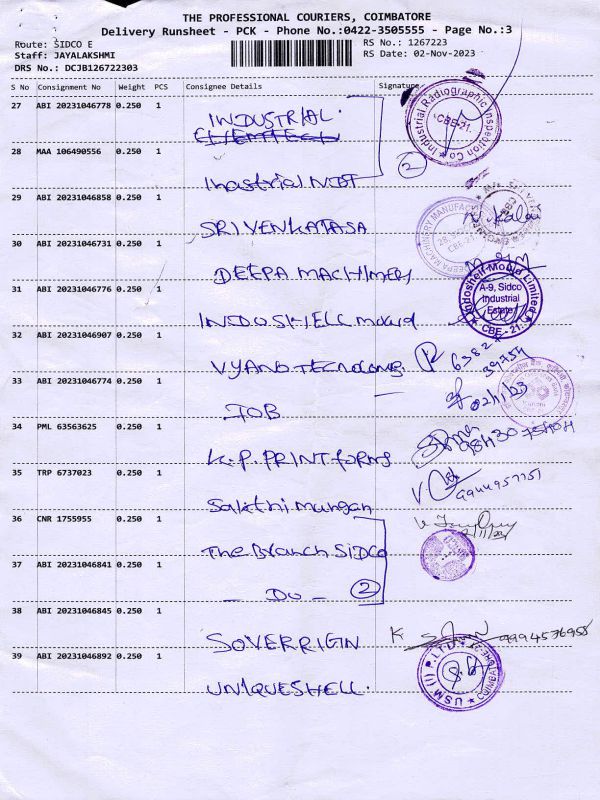 THE PROFESSIONAL COURIERS, COIMBATORE
Delivery Runsheet - PCK - Phone No.:0422-3505555 - Page No.:3
Route: SIDCO E
RS No.: 1267223
Staff: JAYALAKSHMI
RS Date: 02-Nov-2023
DRS No.: DCJB126722303
S No Consignment No Weight PCS Consignee Details Signature
27 ABI 20231046778 0.250 1
INDUSTRIAL.
Industrial Radiographic Inspection Co
CBE-21.
28 MAA 106490556 0.250 1
2
Inastrial NDT
29 ABI 20231046858 0.250 1
SRI VENKATASA
30 ABI 20231046731 0.250 1
DEEPA MACHINERY
DEEPA MACHINERY MANUFAC
CBE-21
31 ABI 20231046776 0.250 1
INDOSHELL mould
Indoshell-Mould Limited
A-9, Sidco
Industrial
Estate
CBE.-21.
32 ABI 20231046907 0.250 1
VYAND 6382
39754
33 ABI 20231046774 0.250 1
IOB 02/11/23
34 PML 63563625 0.250 1
K.P. PRINT forms
35 TRP 6737023 0.250 1
Sakthi murugan
36 CNR 1755955 0.250 1
The Branch SIDCO
37 ABI 20231046841 0.250 1
- DO - 2
38 ABI 20231046845 0.250 1
SOVERRIGIN K 9994536958
39 ABI 20231046892 0.250 1
UNIQUESHELL.
USM (I) P.LTD